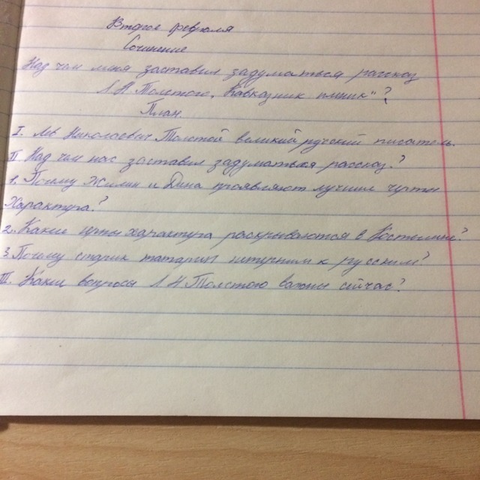 Второе февраля
Сочинение
Над чем меня заставил задуматься рассказ
Л.Н Толстого, Кавказкик пленик"?
План
I. Лев Николаевич Толстой великий русский писатель.
II Над чем нас заставил задуматься рассказ?
1. Почему Жилин и Дина проявляют лучшие черты
характера?
2. Какие черты характера раскрываются в Костылине?
3. Почему старик татарин нетерпим к русским?
III. Какие вопросы Л Н Толстого важны сейчас?